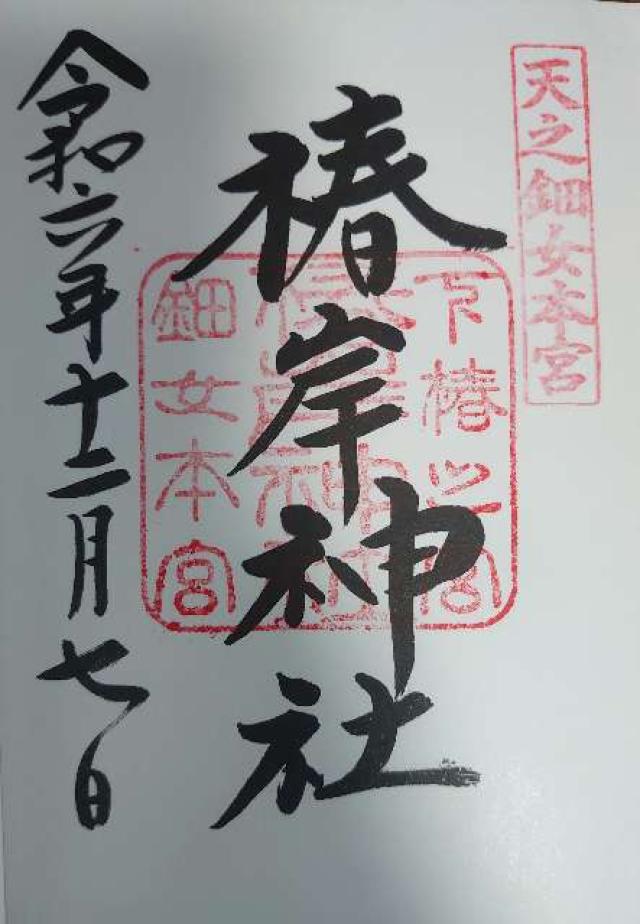 天之鈿女本宮
下椿之宮
椿岸神社
鈿女本宮
椿岸神社
令和六年十二月七日